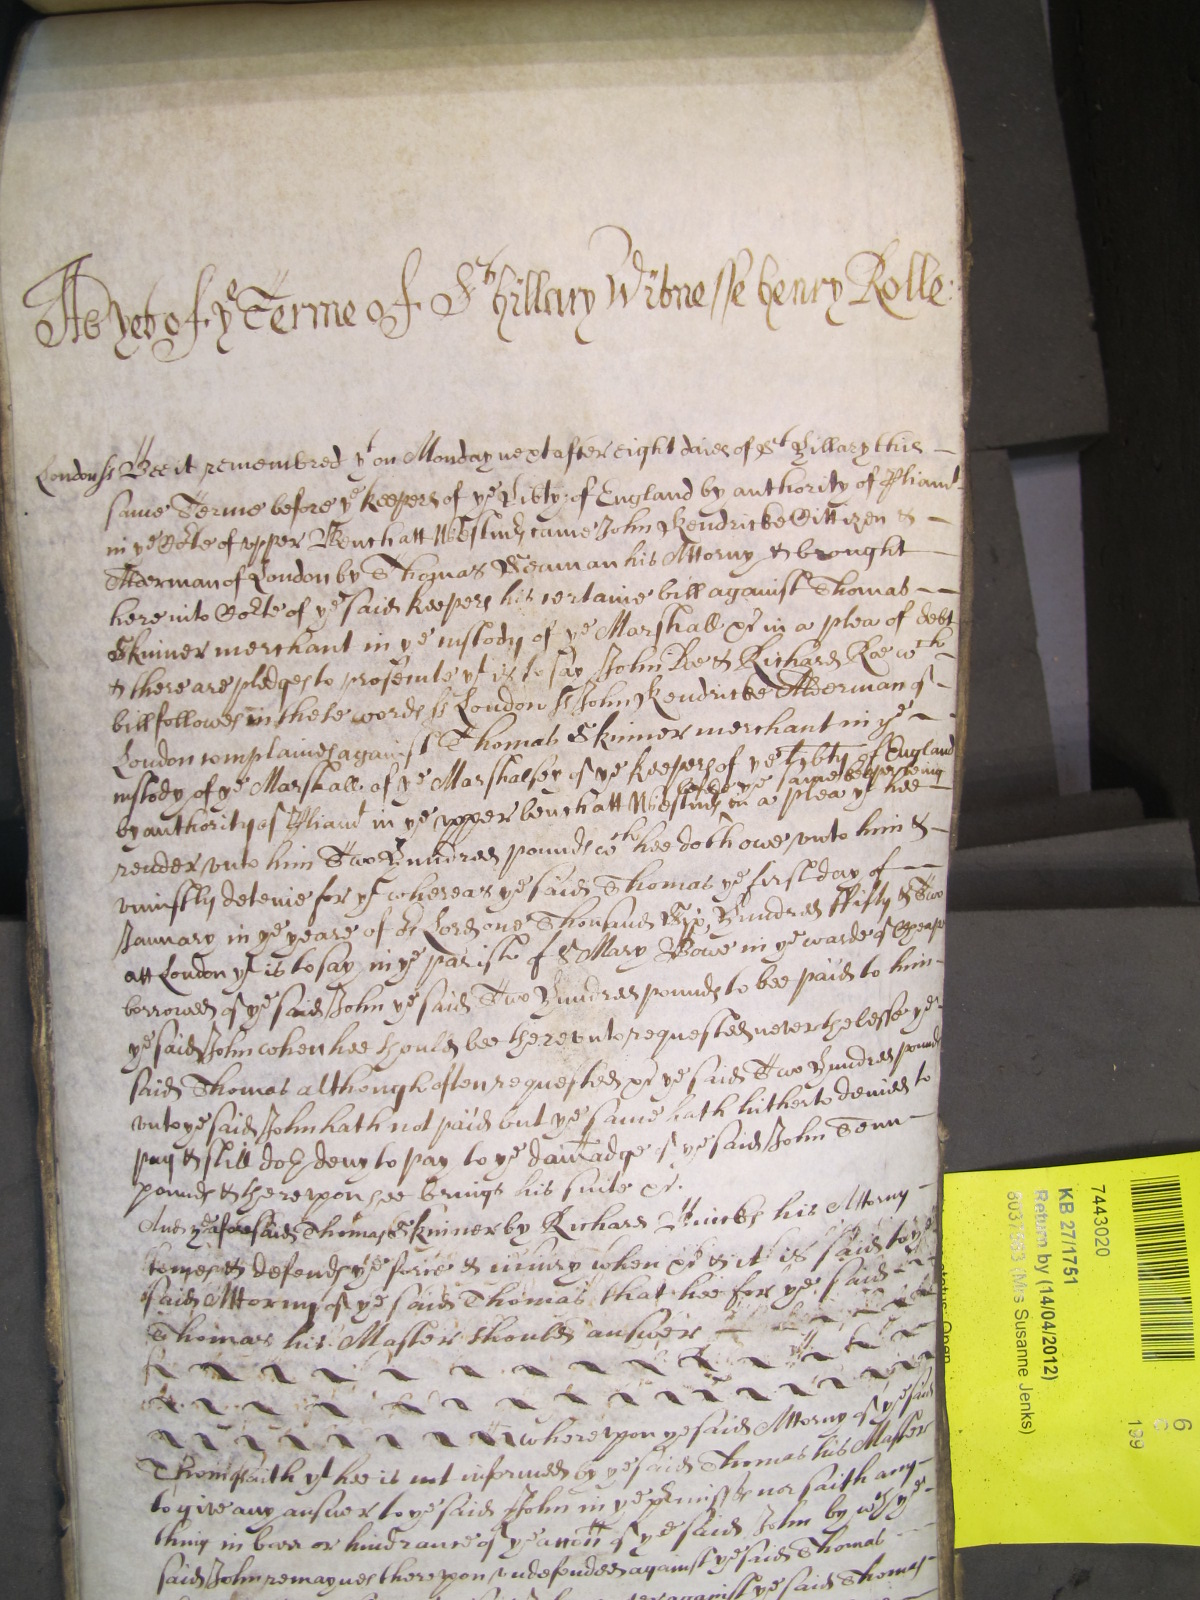 As yet of ye Terme of St hillary Witnesse henry Rolle
London ss Bee it remembred yt on Monday next after eight daies of St Hillary this
same Terme before ye keepers of ye Libty of England by authority of Pliamt
in ye Co:te of vpper Bench att Westmr came John Kendricke Cittizen &
Alderman of London by Thomas Seaman his Attorny & brought
here into Co:te of ye said keepers his certaine bill against Thomas
Skinner merchant in ye custody of ye Marshall &c in a plea of debt
& there are pledges to prosecute yt is to say John Doe & Richard Roe wch
bill followes in these words ss London ss John Kendricke Alderman of
London complaines against Thomas Skinner merchant in ye
custody of ye Marshall of ye Marshalsey of ye keepers of ye Lybty of England
before ye same keepers being
by authority of Pliamt in ye vpper bench att Westmr in a plea yt hee
render vnto him Two Hundred pounds wch hee doth owe vnto him &
vniustly deteine for yt whereas ye said Thomas ye first day of
January in ye yeare of or Lord one Thousand Six Hundred ffifty & Two
att London yt is to say in ye parish of St Mary Bowe in ye warde of Cheape
borrowed of ye said John ye said Two Hundred pounds to bee paid to him
ye said John when hee should bee therevnto requested neverthelesse ye
said Thomas although often requested &c ye said Two Hundred pounds
vnto ye said John hath not paid but ye same hath hitherto denied to
pay & still doth deny to pay to ye damadge of ye said John Tenn
pounds & therevpon hee brings his suite &c.
And ye aforesaid Thomas Skinner by Richard his Attorny
comes & defends ye force & iniury when &c & it is said to ye
said Attorny of ye said Thomas that hee for ye said
Thomas his Master should answer
wherevpon ye said Attorny of ye said
Thomas saith yt hee is not informed by ye said Thomas his Master
to give any answer to ye said John in ye pmisses nor saith any
thing in barr or hindrance of ye accon of ye said John by wch ye
said John remaynes therevpon vndefended against ye said Thomas
against ye said Thomas
7443020
KB 27/1751
Return by (14/04/2012)
(Mrs Susanne Jenks)
Open
6
199